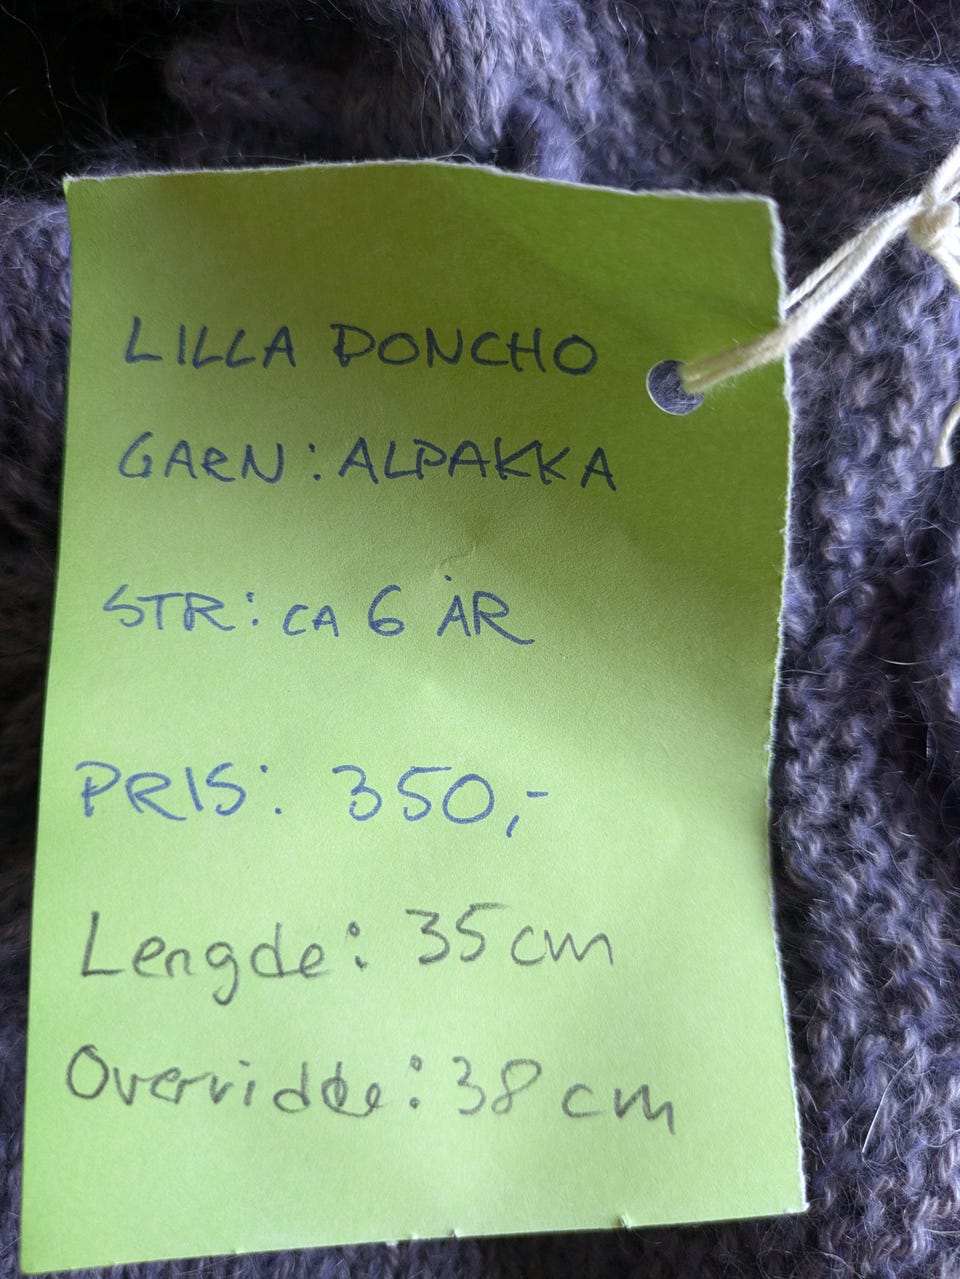 LILLA PONCHO
GARN: ALPAKKA
STR: CA 6 ÅR
PRIS: 350,-
Lengde: 35 cm
Overvidde: 38 cm